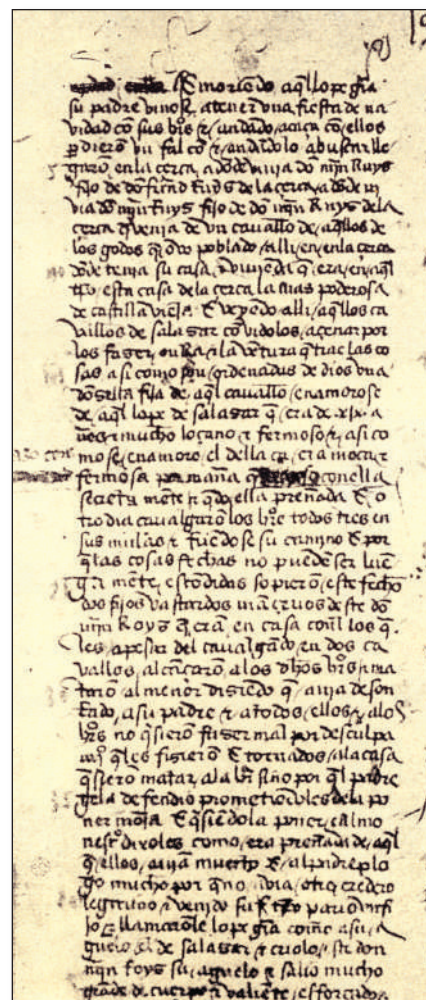 E moriendo aq̃l lope grã
su padre vinose atener vna fiesta de na
vidad cõ sus hr̃os & andãdo acaça cõ ellos
ꝑdierõ vn falcõ & andãdolo abuscar lle
garõ en la cerca adõde viuia dõ mr̃n Ruys
fijo de dõ frñdo Ruys de la cerca adõde vi
via dõ mr̃n Ruys fijo de dõ mr̃n Ruys de la
cerca q̃ venia de vn cavallo de aq̃llos de
los godos q̃ ovo poblado alli en enla cerca
dõde tenia su casa & vivienda q̃ era en aq̃l
tpo esta casa de la cerca la mas poderosa
de castilla vieja E veyẽdo alli aq̃llos ca
vallos de salasar cõvidolos acenar por
los faser onRa & la vẽtura q̃ trae las co
sas asi como son ordenadas de dios vna
dõsella fija de aq̃l cavallo enamorose
de aq̃l lope de salasar q̃ era de xix a
ños & mucho loçano & fermoso & asi co
mo se enamoro el della q̃ era moça &
fermosa por maña q̃ con ella
secreta mẽte & q̃do ella preñada E o
tro dia cavalgarõ los hr̃os todos tres en
sus mulas & fuerõ se su camino E por
q̃ las cosas fechas no pueden ser luẽ
ga mẽte escõdidas sopierõ este fecho
dos fijos vastardos mãcevos deste dõ
mr̃n Roys q̃ erã en casa con los q̃
les apesar del cavalgãdo en dos ca
vallos alcãçarõ alos dhos hr̃os & ma
tarõ al menor disiẽdo q̃ avia deson
Rado asu padre & atodos ellos & alos
hr̃os no q̃sierõ faser mal por desculpa
q̃ les fisierõ E tornados ala casa
q̃sierõ matar ala hr̃ sino por q̃l padre
gela defendio prometiẽdoles dela po
ner mõja E q̃siẽdola poner
dixoles como era preñada de aq̃l
q̃ ellos aviã muerto E al padre plo
go mucho por q̃ no avia otro eredero
legitimo & venido el tpo pario vn fi
jo & llamarõle lope grã como asu a
guelo el de salasar & criolo este don
mr̃n Roys su aguelo & salio mucho
grãde de cuerpo & valiẽte esforçado